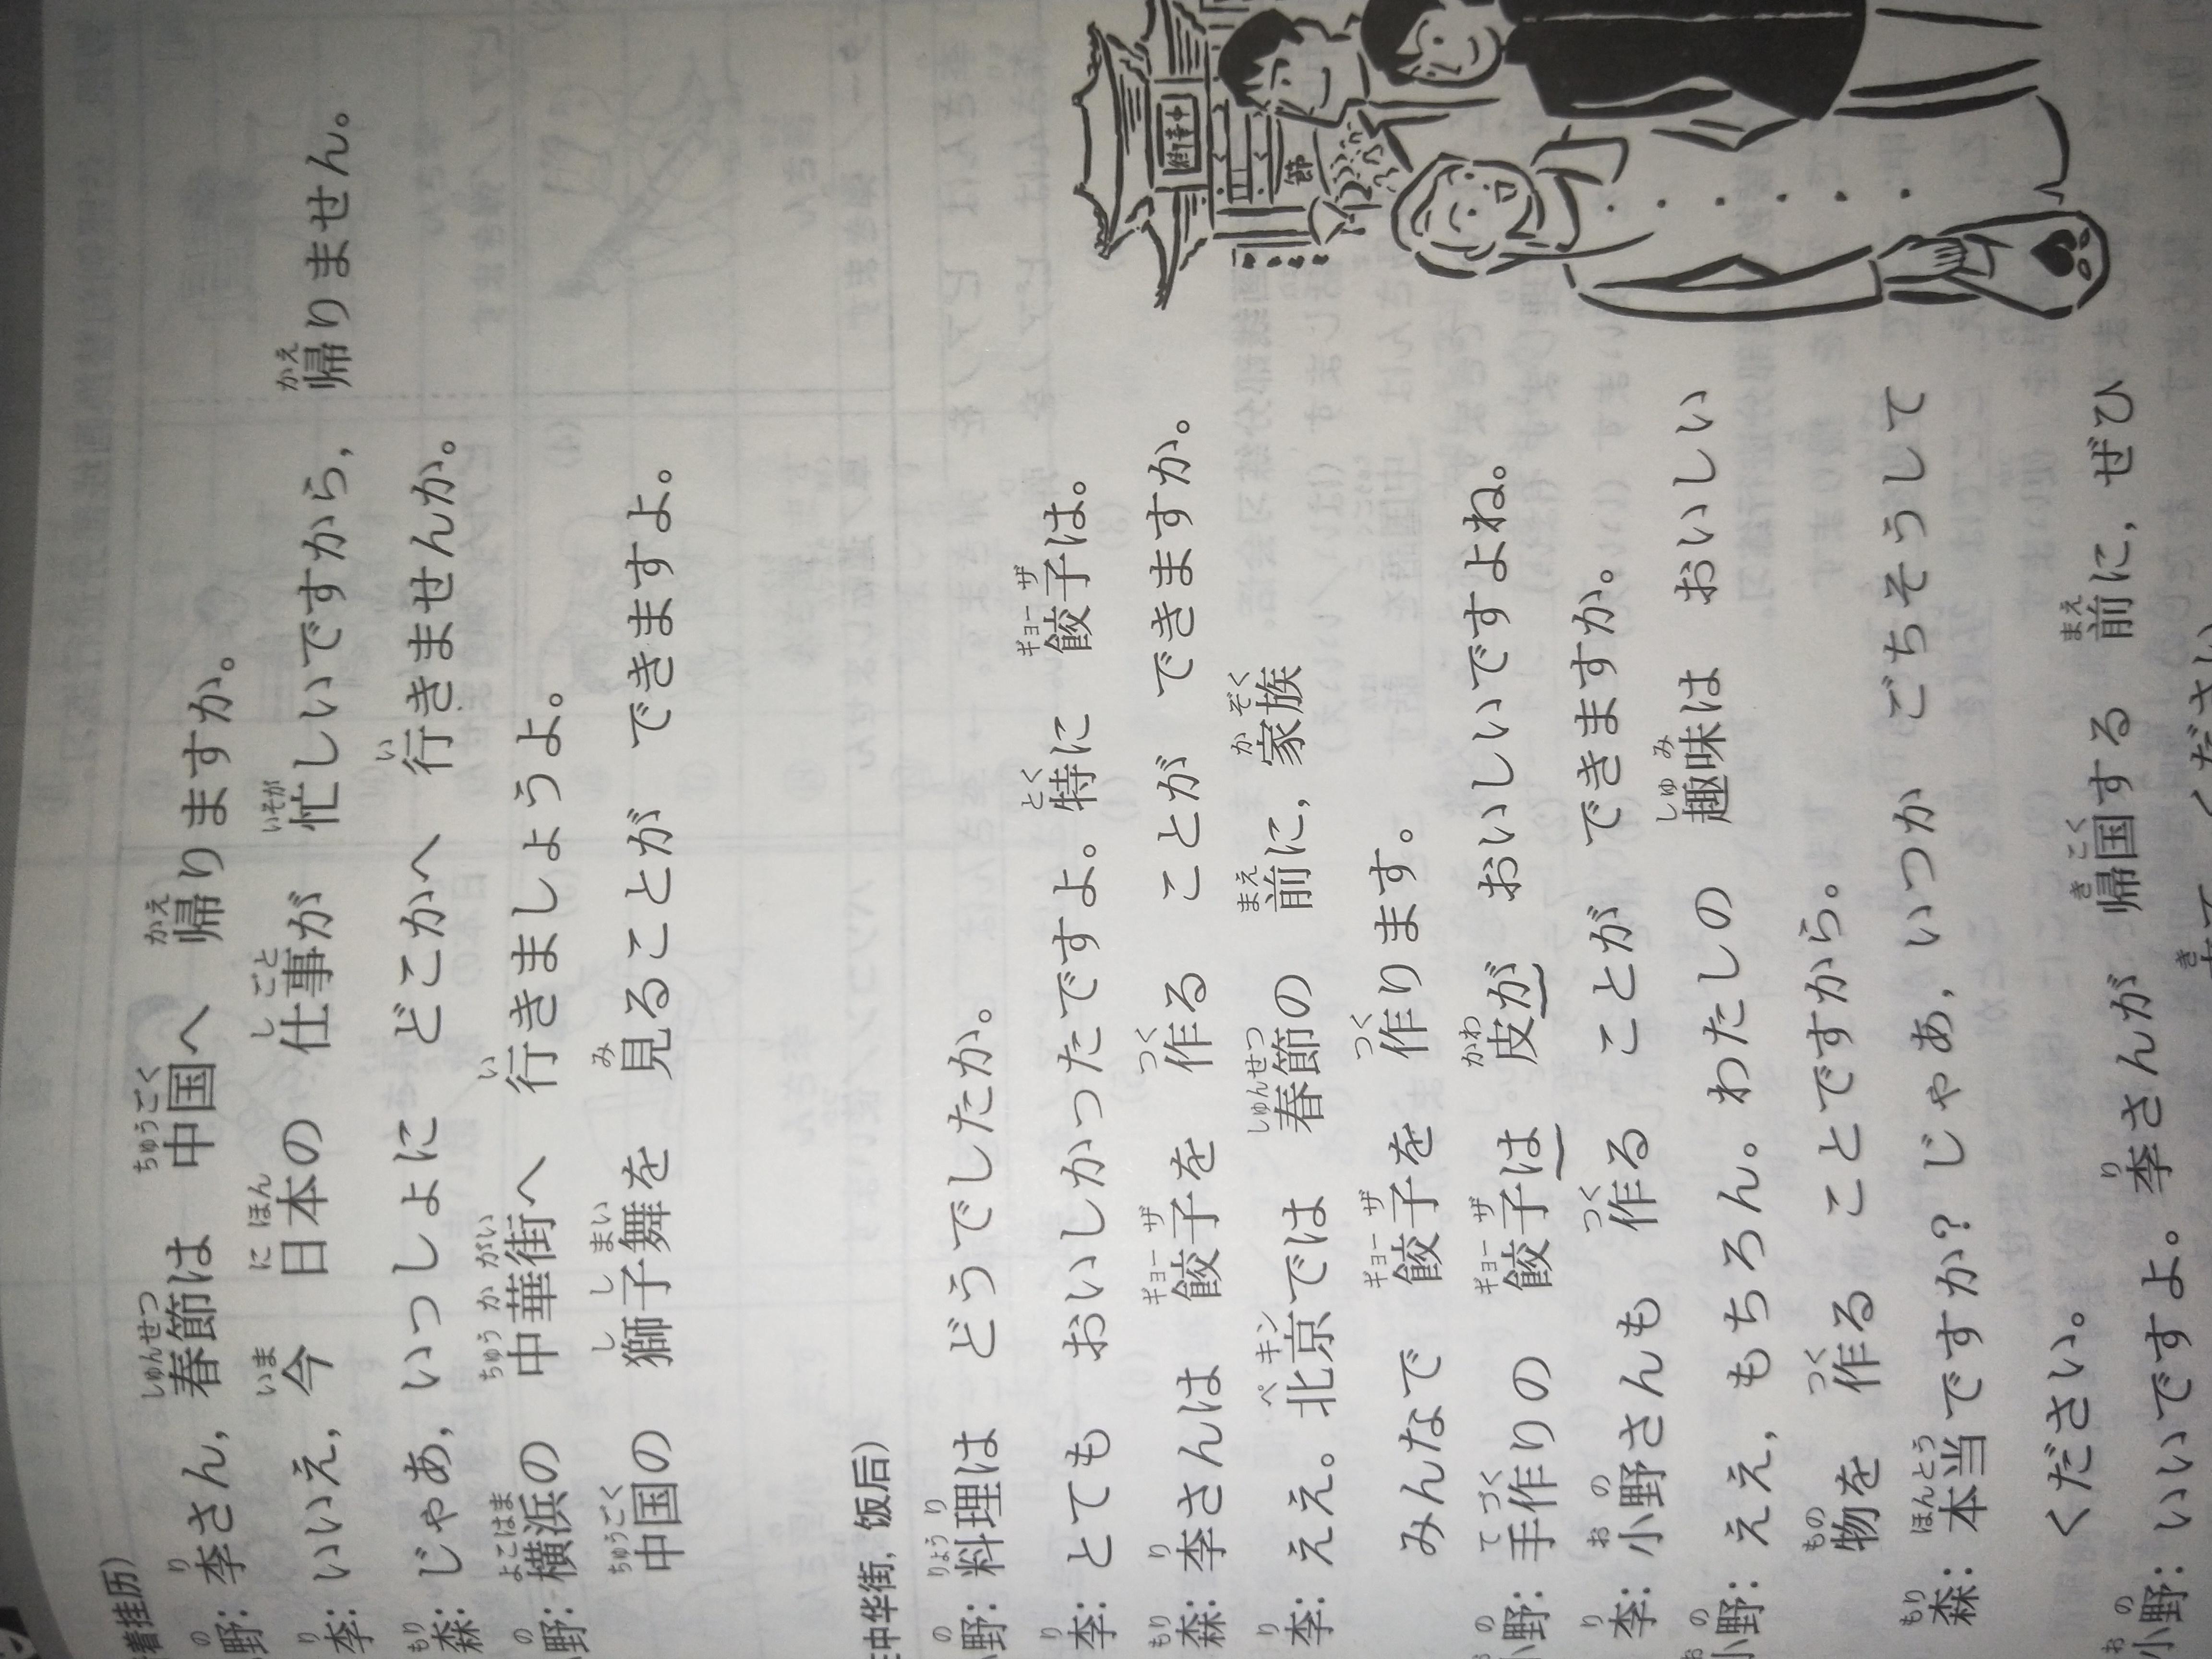 着挂历)
野: 李さん, 春節は 中国へ 帰りますか。
李: いいえ, 今 日本の 仕事が 忙しいですから, 帰りません。
森: じゃあ, いっしょに どこかへ 行きませんか。
野: 横浜の 中華街へ 行きましょうよ。
中国の 獅子舞を 見ることが できますよ。
中华街, 饭后)
野: 料理は どうでしたか。
李: とても おいしかったですよ。特に 餃子は。
森: 李さんは 餃子を 作る ことが できますか。
李: ええ。北京では 春節の 前に, 家族
みんなで 餃子を 作ります。
小野: 手作りの 餃子は 皮が おいしいですよね。
李: 小野さんも 作る ことが できますか。
小野: ええ, もちろん。わたしの 趣味は おいしい
物を 作る ことですから。
森: 本当ですか? じゃあ, いつか ごちそうして
ください。
小野: いいですよ。李さんが 帰国する 前に, ぜひ
ください
中華街
節